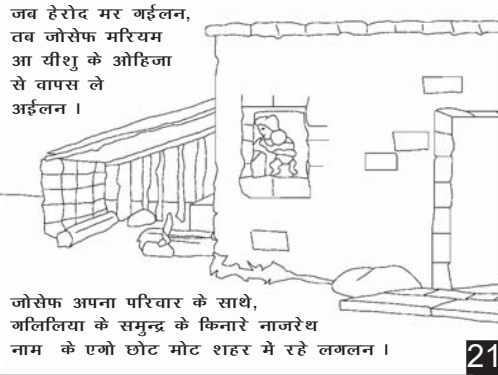 जब हेरोद मर गईलन,
तब जोसेफ मरियम
आ यीशु के ओहिजा
से वापस ले
अईलन ।
जोसेफ अपना परिवार के साथे,
गलिलिया के समुन्द्र के किनारे नाजरेथ
नाम के एगो छोट मोट शहर में रहे लगलन ।
21